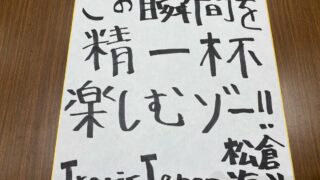 この瞬間を
精一杯
楽しむゾー!!
松倉
Travis Japan